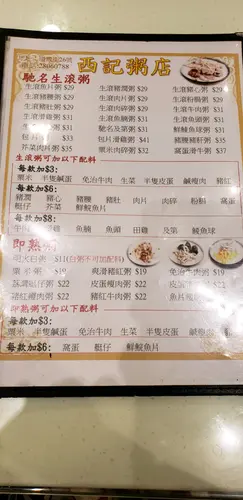 西記粥店
馳名生滾粥
生滾魚片粥 $29 生滾豬潤粥 $29 生滾豬心粥 $29
生滾豬腰粥 $29 生滾肉片粥 $29 生滾粉腸粥 $29
生滾豬肚粥 $29 生滾肉碎粥 $29 生滾牛肉粥 $29
生滾滑雞粥 $31 生滾魚腩粥 $31 生滾魚頭粥 $31
$31 馳名及第粥 $31 鮮鯪魚球粥 $31
$33 枝片滑雞粥 $31 豬腰豬肝粥 $35
芥菜肉片粥 $35 粟米肉碎粥 $32 窩蛋滑牛粥 $31
生滾粥可加以下配料
每款加$3:
粟米 半隻鹹蛋 免治牛肉 生菜 半隻皮蛋 鹹瘦肉 豬紅
每款加$6:
豬潤 豬心 豬腰 豬肚 肉片 肉碎 粉腸 窩蛋
艇仔 芥菜 鮮鯇魚片
每款加$8:
魚腩 魚頭 田雞 及第 鯪魚球
即熟粥
明火白粥 $11(白粥不可加配料)
$19 爽滑豬紅粥 $19 免治牛肉粥 $19
$22 皮蛋瘦肉粥 $22
豬紅瘦肉粥 $22 豬紅牛肉粥 $22
即熟粥可加以下配料
每款加$3:
粟米 半隻鹹蛋 免治牛肉 生菜 半隻皮蛋
每款加$6: 窩蛋 艇仔 鮮鯇魚片